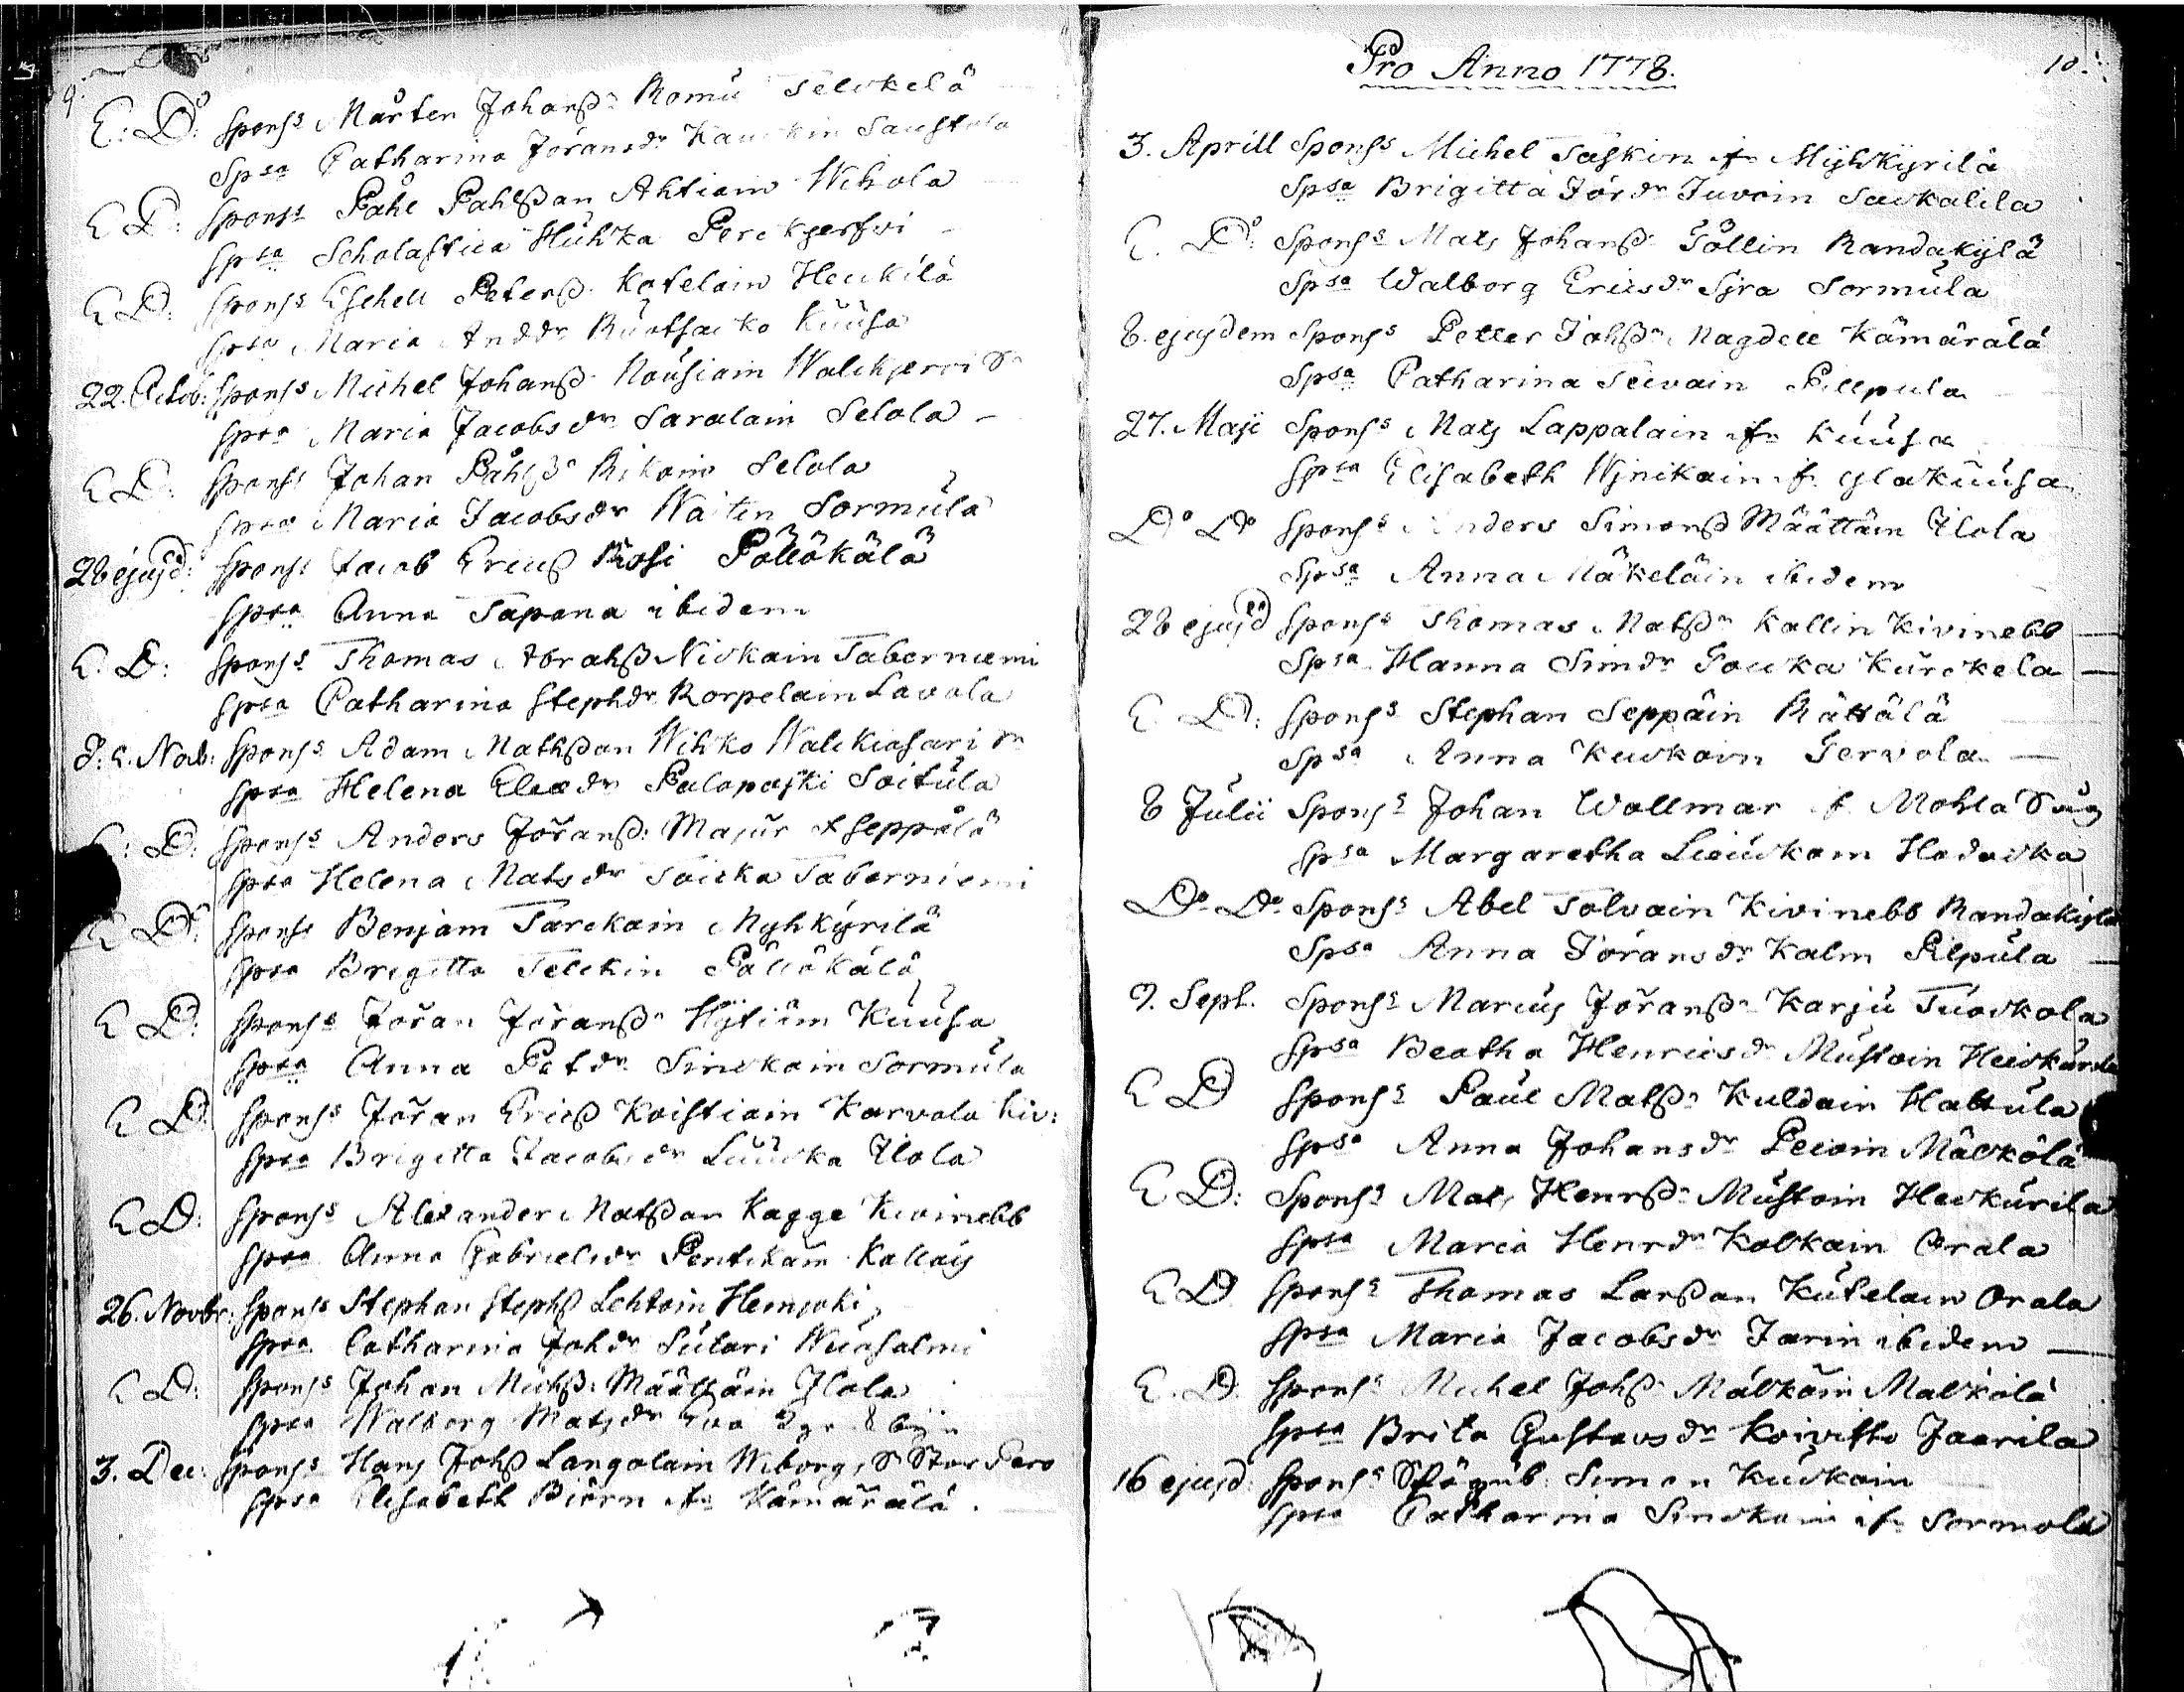 9.
E: Do: Sponss Mårten Johanß Romu Telckelä
Spsa Catharina Jöransdr Saustola
E D: Sponss Påhl Pahlßon Ahtiain Wihola
Spsa Scholastica Huhka Perckjerfwi
E D: Sponss Eschell Peterß Kotelain Heikilä
Spsa Maria Anddr Ruotsacko Kuusa
22. Octob: Sponss Michel Johanß Nousiain Walckjerwi
Spsa Maria Jacobsdr Saralain Selola
E D: Sponss Johan Påhlß Rikain Selola
Spsa Maria Jacobsdr Sormula
28 ejusd: Sponss Jacob Ericß Pöllökälä
Spsa Anna Tapana ibidem
E. D: Sponss Thomas Abrahß Nickain Taberniemi
Spsa Catharina Stephdr Korpelain Lavola
d. e. Nov: Sponss Adam Mathßon Wihko Walckiasari
Spsa Helena Palopaski Soitula
E: D: Sponss Anders Jöranß: Majur Seppälä
Spsa Helena Matsdr Toicka Taberniemi
E Do: Sponss Benjam Tarckain Myhkyrilä
Spsa Brigitta Telckin Pällökälä
E D: Sponss Jöran Jöranß Hytiäin Kuusa
Spsa Anna Petdr Sinckain Sormula
E D: Sponss Jöran Ericß Koistiain Karvala Kiv:
Spsa Brigitta Jacobsdr Luucka Ilola
E D: Sponss Alexander Matßon Kagge Kivinebb
Spsa Anna Gabrielsdr Pentikäin Kallois
26. Novbr: Sponss Stephan Stephß Lehtoin Heinjoki
Spsa Catharina Johdr Sutari
E D: Sponss Johan Michß: Määttäin Ilola
Spsa Walborg Matsdr
3. Dec: Sponss Hans Johß Langolain Wiborgs Stor Pero
Spsa Elisabeth Biörn fr Kämärälä.
Pro Anno 1778.
10.
3. Aprill Sponss Michel Taskin fr Myhkyrilä
Spsa Brigitta Jördr Juvoin
E. Do: Sponss Mats Johanß Göllin Randakylä
Spsa Walborg Ericsdr Syra Sormula
8. ejusdem Sponss Petter Johßn Magdell Kämärälä
Spsa Catharina Pillpula
27. Maji Sponss Mats Lappalain fr Kuusa
Spsa Elisabeth Wjnikain fr ylakuusa
Do Do Sponss Anders Simonß Määttäin Ilola
Spsa Anna Mäkeläin ibidem
28 ejusd Sponss Thomas Matßn Kallin Kivinebb
Spsa Hanna Simdr Kurckela
E D: Sponss Stephan Seppäin Rättälä
Spsa Anna Kuckoin Terwola
8 Julii Sponss Johan Wollmar f. Mohla
Spsa Margaretha
Do Do Sponss Abel Tolvain Kivinebb Randakylä
Spsa Anna Jöransdr Kalm Pilpula
9. Sept. Sponss Marcus Jöranßn Karju Tuockola
Spsa Beatha Henricsdr Mustoin Heickurila
E D Sponss Paul Matßn Kuldain Hattula
Spsa Anna Johansdr Mälkölä
E D: Sponss Mats Henrßn Mustoin Heckurila
Spsa Maria Henrdr Kolkain Orala
E D Sponss Thomas Larßon Kutelain Orala
Spsa Maria Jacobsdr Tarin ibidem
E. D. Sponss Michel Johß Mälköin Mälkölä
Spsa Brita Gustavsdr Koivisto Jaarila
16 ejusd: Sponss Simon Kuckoin
Spsa Catharina Sinckain fr Sormola